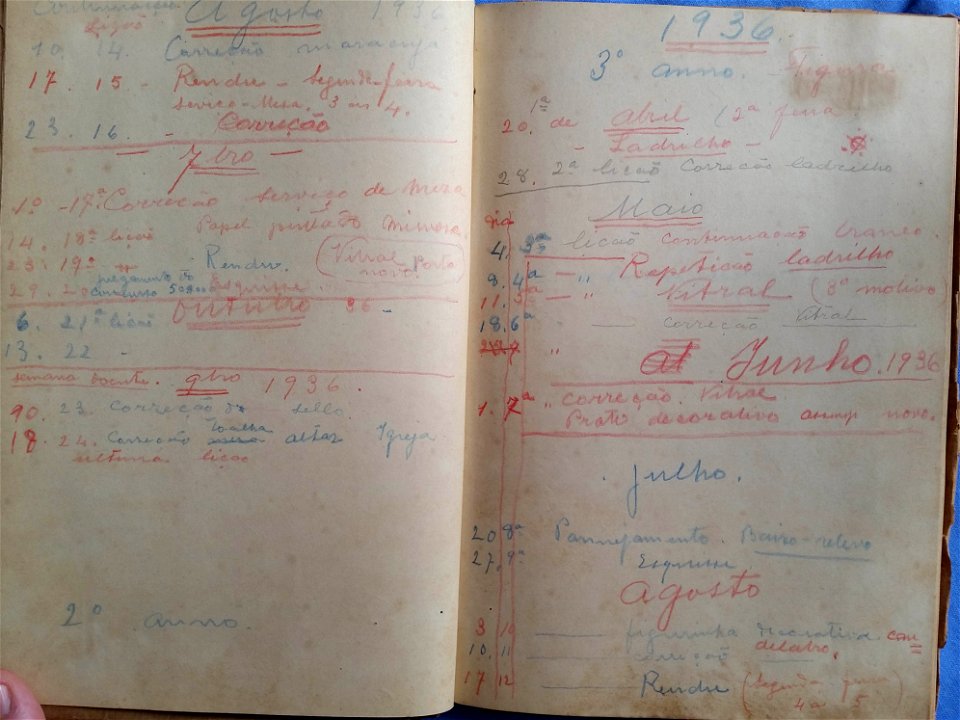 Continuação Agosto 1936
Lição
10. 14. Correção moranga
17. 15 - Rendre - Segunda-feira
serviço-Mesa. 3 às 4.
23. 16. - Correção
- 7bro -
1º - 17ª Correção serviço de Mesa
14. 18ª lição Papel pintado Mimosa.
23. 19ª Rendre. (Vitral Porto
novo)
29. 20 pagamento do
concurso 50 Esquisse
Outubro 36 -
6. 21ª lição
13. 22 -
semana doente. 9bro 1936.
23. Correção do sello.
18. 24. Correção toalha altar Igreja
ultima lição
2º anno.
1936.
3º anno. Figura
20. 1ª de abril (2ª feira
- Ladrilho -
28. 2ª lição Correção ladrilho
Maio
dia
4. 3ª lição continuação branco.
8. 4ª - " Repetição ladrilho
11. 5ª - " Vitral (3º motivo)
18. 6ª correção Vitral
"
Junho. 1936
1. 7ª " correção. Vitral
Prato decorativo assump novo.
Julho.
20 8ª Pannejamento. Baixo-relevo
27. 9ª Esquisse
Agosto
3 10 figurinha decorativa com
10. 11 correção
17 12 Rendre (Segunda-feira
4 às 5